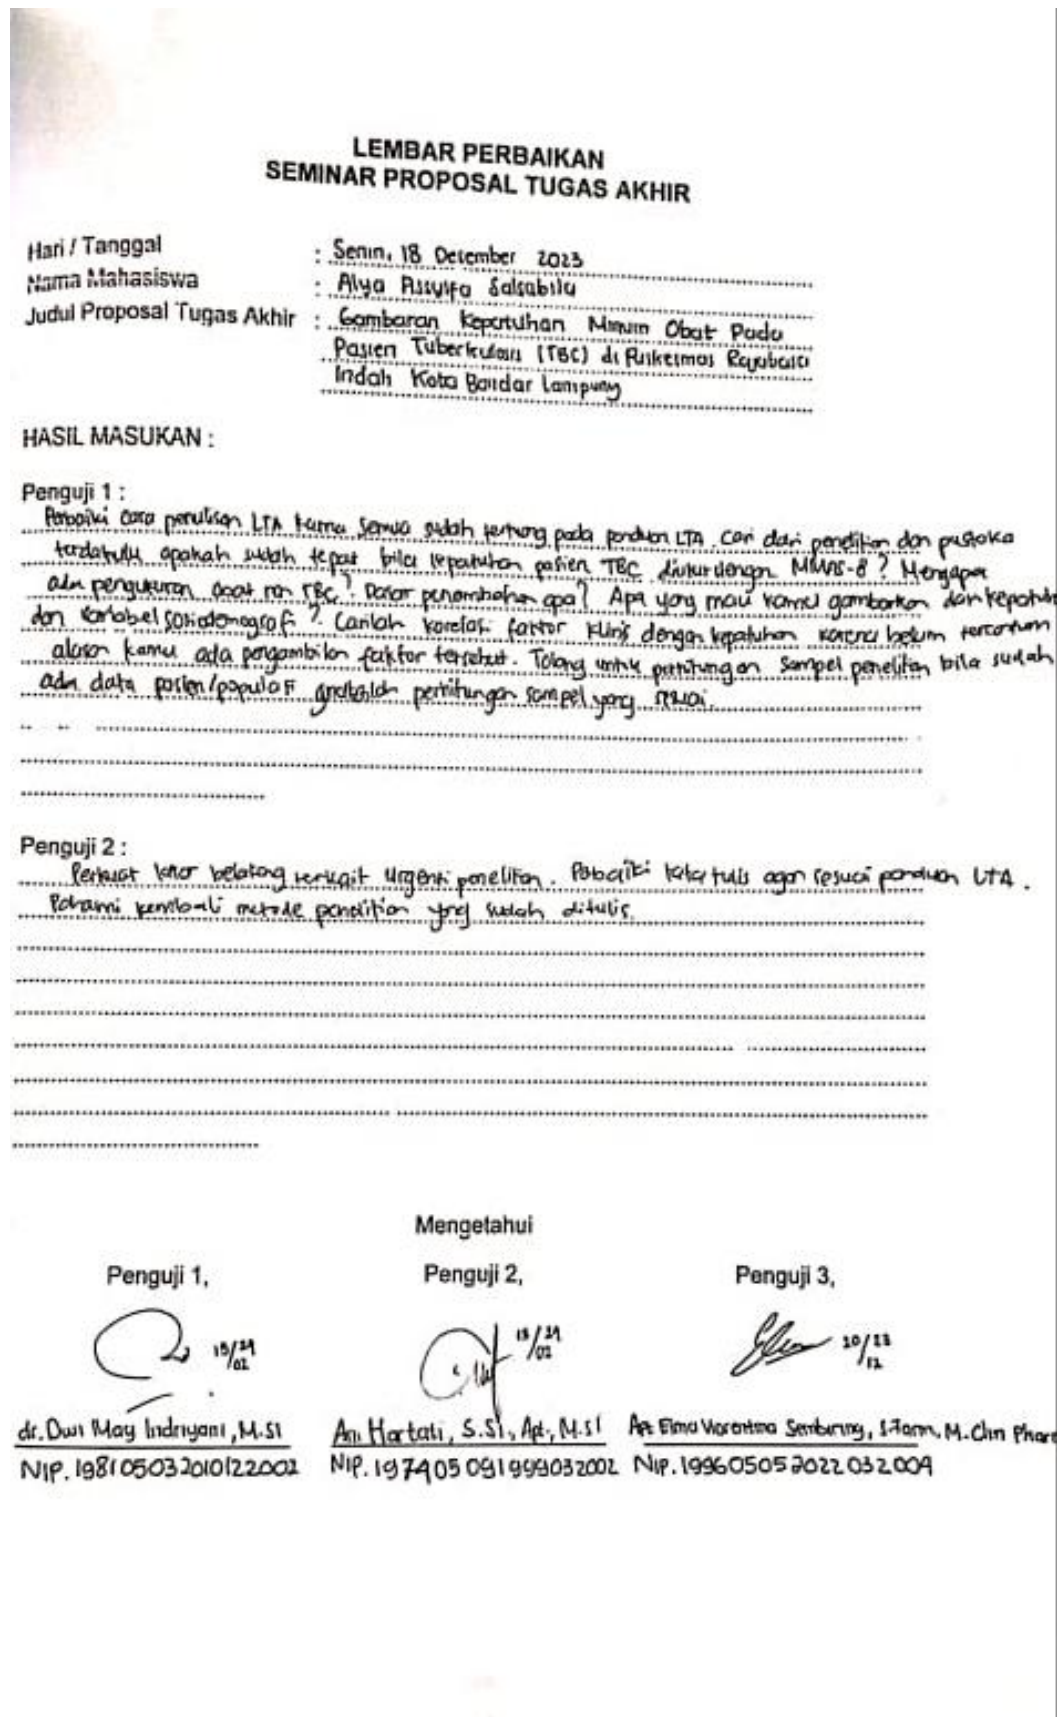 LEMBAR PERBAIKAN
SEMINAR PROPOSAL TUGAS AKHIR
Hari / Tanggal : Senin, 18 Desember 2023
Nama Mahasiswa : Alya Assyifa Salsabila
Judul Proposal Tugas Akhir : Gambaran Kepatuhan Minum Obat Pada
Pasien Tuberkulosis (TBC) di Puskesmas Rajabasa
Indah Kota Bandar Lampung
HASIL MASUKAN :
Penguji 1 :
Perbaiki cara penulisan LTA karna semua sudah tentang pada panduan LTA. Cari dari penelitian dan pustaka
terdahulu apakah sudah tepat bila kepatuhan pasien TBC diukur dengan MMAS-8 ? Mengapa
ada pengukuran obat non TBC ? Dasar penambahan apa? Apa yang mau kamu gambarkan dari kepatuhan
dan variabel sosiodemografi ? Carilah korelasi faktor klinis dengan kepatuhan karena belum tercantum
alasan kamu ada pengambilan faktor tersebut. Tolong untuk perhitungan sampel penelitian bila sudah
ada data pasien/populasi perhitungan sampel yang sesuai.
Penguji 2 :
Perkuat latar belakang terkait urgensi penelitian. Perbaiki tata tulis agar sesuai panduan LTA.
Pahami kembali metode penelitian yang sudah ditulis.
Mengetahui
Penguji 1, Penguji 2, Penguji 3,
20/23
12
dr. Dwi May Indriyani, M.Si Ani Hartati, S.Si, Apt, M.Si Apt Elma Viorentina Sembiring, S.Farm, M.Clin Pharm
NIP. 198105032010122002 NIP. 197405091999032002 NIP. 199605052022032009